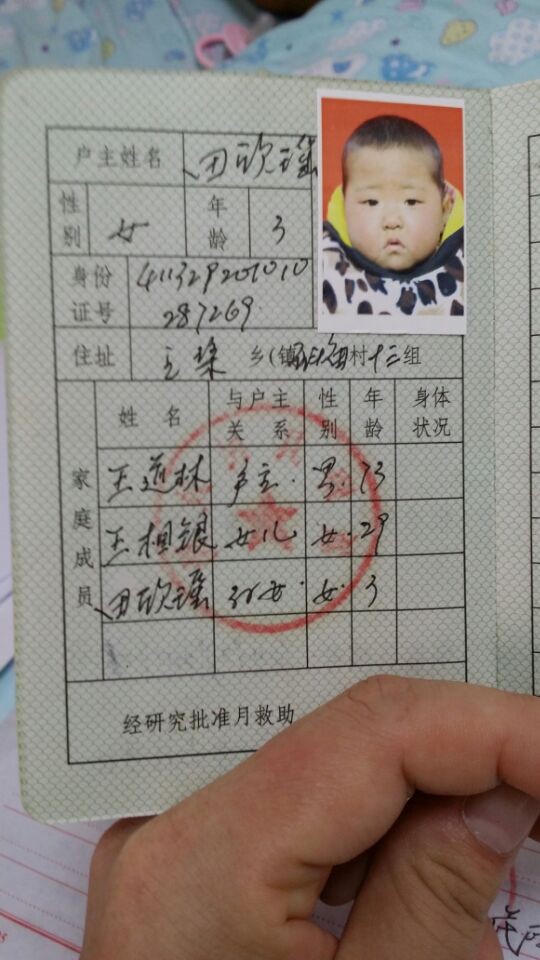 户主姓名 田欣瑶
性别 女 年龄 3
身份证号 411329201010
287269
住址 王集 乡(镇 村十三组
家庭成员 姓名 与户主关系 性别 年龄 身体状况
王道林 户主 男 73
王相银 女儿 女 29
田欣瑶 孙女 女 3
经研究批准月救助